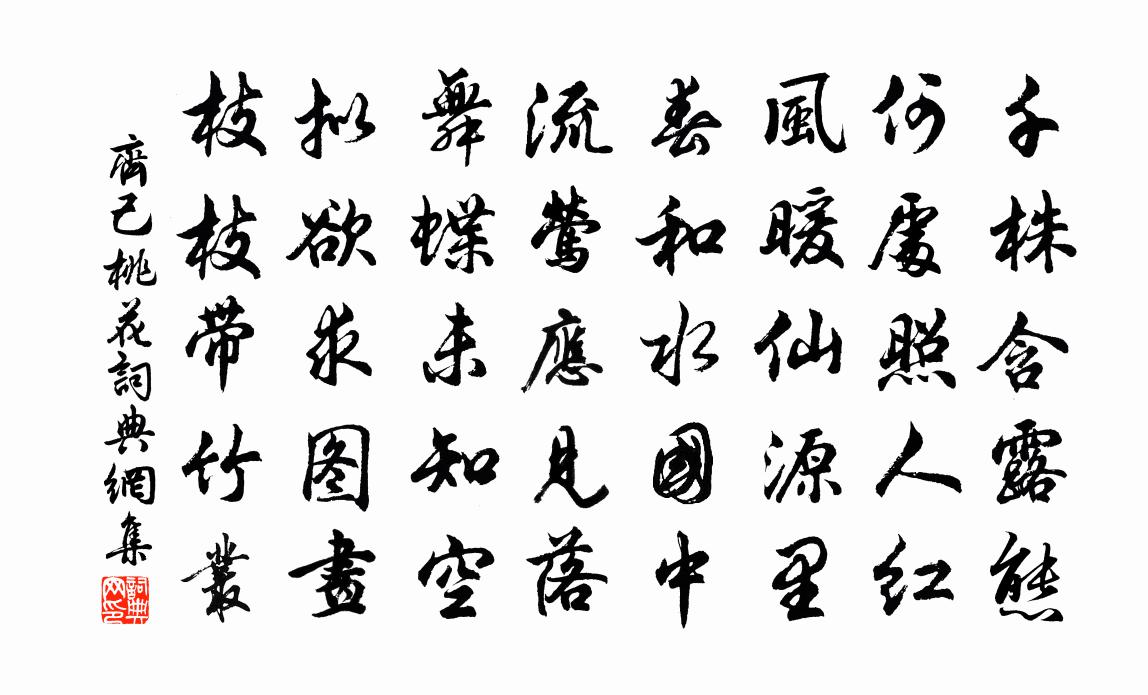 千株含露熊
何處照人紅
風暖仙源里
春和水國中
流鶯應見落
舞蝶未知空
拟欲求图畫
枝枝带竹叢
齊己桃花詞典網集
詞典網印